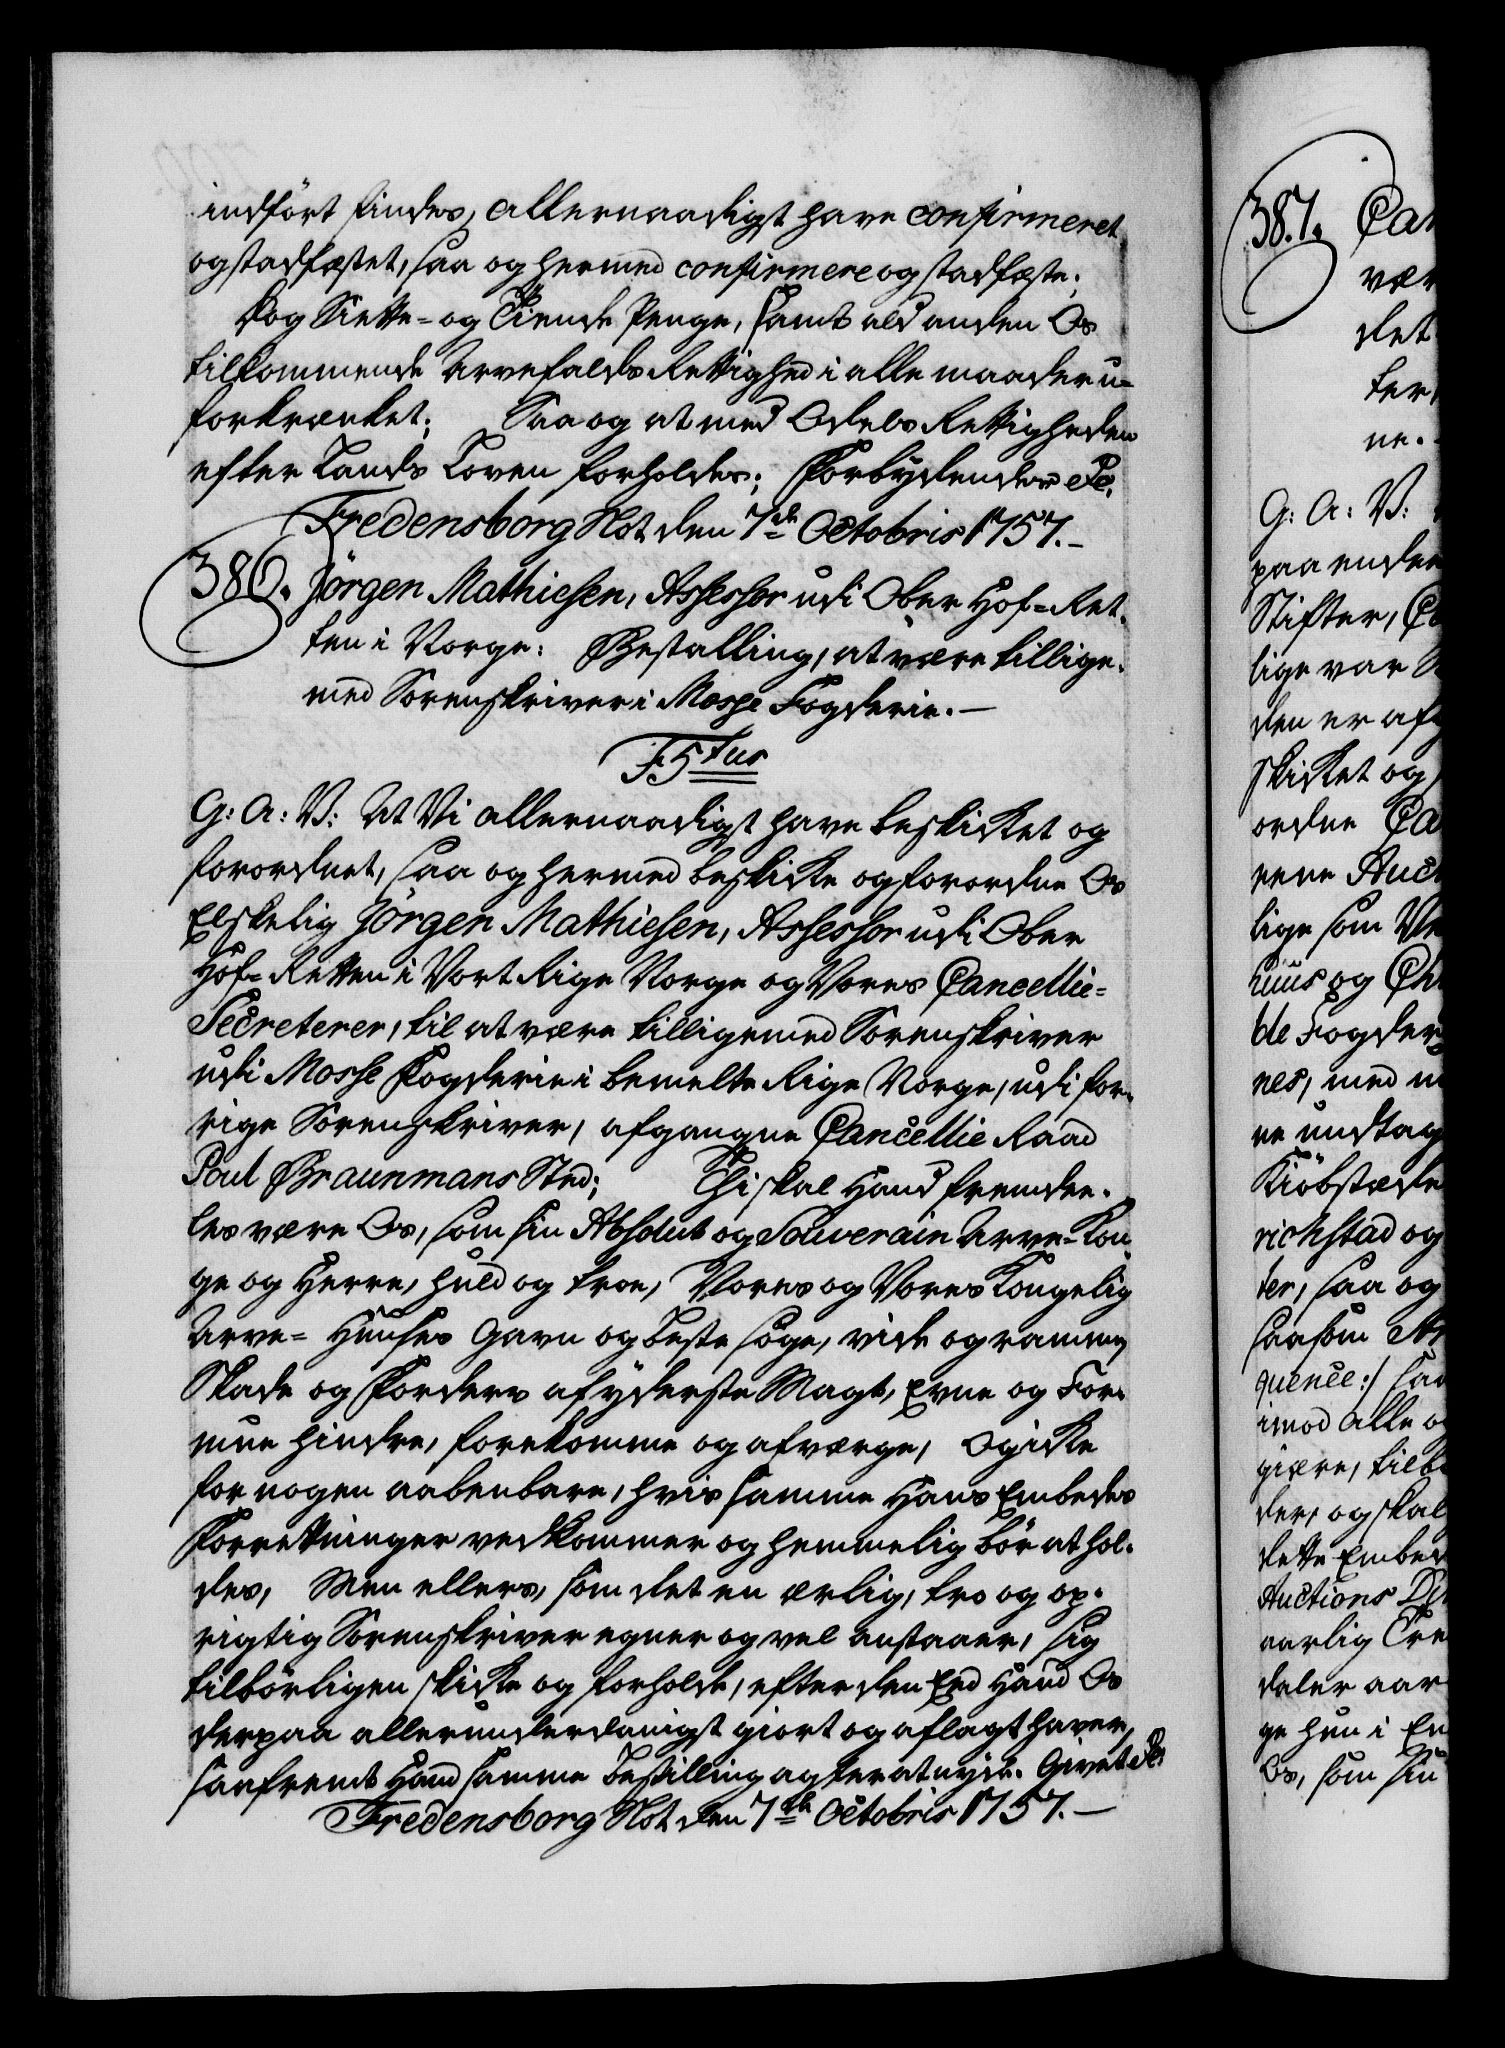 indført findes, allernaadigst have confirmeret
og stadfæstet, saa og hermed confirmere og stadfæste;
Dog Siette- og Tiende Penge, samt ald anden Os
tilkommende Arvefalds Rettighed i alle maader u-
forkrænket; Saa og at med Odels Rettigheden
efter Lands Loven forholdes; Forbydendes &c.
Fredensborg Slot den 7de Octobris 1757.-
386. Jörgen Mathiesen, Assessor udi Ober Hof-Ret-
ten i Norge: Bestalling, at være tillige-
med Sorenskriver i Mosse Fogderie.-
F5tus
G: A: V: At Vi allernaadigst have beskikket og
forordnet, saa og hermed beskikke og forordne Os
Elskelig Jörgen Mathiesen, Assessor udi Ober
Hof-Retten i Vort Rige Norge og Vores Cancellie-
Secreterer, til at være tilligemed Sorenskriver
udi Mosse Fogderie i bemelte Rige Norge, udi for-
rige Sorenskriver, afgangne Cancellie Raad
Poul Braunmans Sted; Thi skal Hand fremde-
les være Os, som sin Absolut og Souverain Arve-Kon-
ge og Herre, huld og troe, Vores og Vores Kongelig
Arve- Huuses Gavn og beste søge, vide og ramme,
Skade og Forderv af yderste Magt, Evne og For-
mue hindre, forekomme og afværge, Og ikke
for nogen aabenbare, hvis samme Hans Embedes
Forretninger vedkommer og hemmelig bør at hol-
des, Men ellers, som det en ærlig, tro og op-
rigtig Sorenskriver egner og vel anstaaer, sig
tilbørligen skikke og forholde, efter den Eed Hand Os
derpaa allerunderdanigst giort og aflagt haver,
saafremt Hand samme bestilling agter at nyde. Givet &c.
Fredensborg Slot den 7de Octobris 1757.-
387. Can
vær
det
ter,
ne.
G: A: V:
paa ender
Stifter,
lige var
den er af
skikket og
ordne Ca
rene Auc
lige som
huus og
de Fogder
nes, med
re undtag
Kiöbstæde
richstad og
ter, saa og
saasom
quence:/ saa
imod alle
giære, tilb
der, og skal
dette Embed
Auctions
aarlig
daler aar
ge hun i
Os, som sin